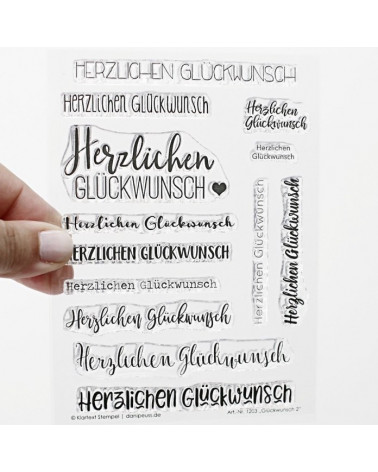 HERZLICHEN GLÜCKWUNSCH
HERZLICHEN GLÜCKWUNSCH
Herzlichen
Glückwunsch
Herzlichen
Glückwunsch
Herzlichen
GLÜCKWUNSCH
Herzlichen Glückwunsch
HERZLICHEN GLÜCKWUNSCH
Herzlichen Glückwunsch
Herzlichen Glückwunsch
Herzlichen Glückwunsch
Herzlichen Glückwunsch
Herzlichen Glückwunsch
HERZLICHEN GLÜCKWUNSCH
© Klartext Stempel | danipeuss.de
Art.-Nr. 1203 „Glückwunsch 2"